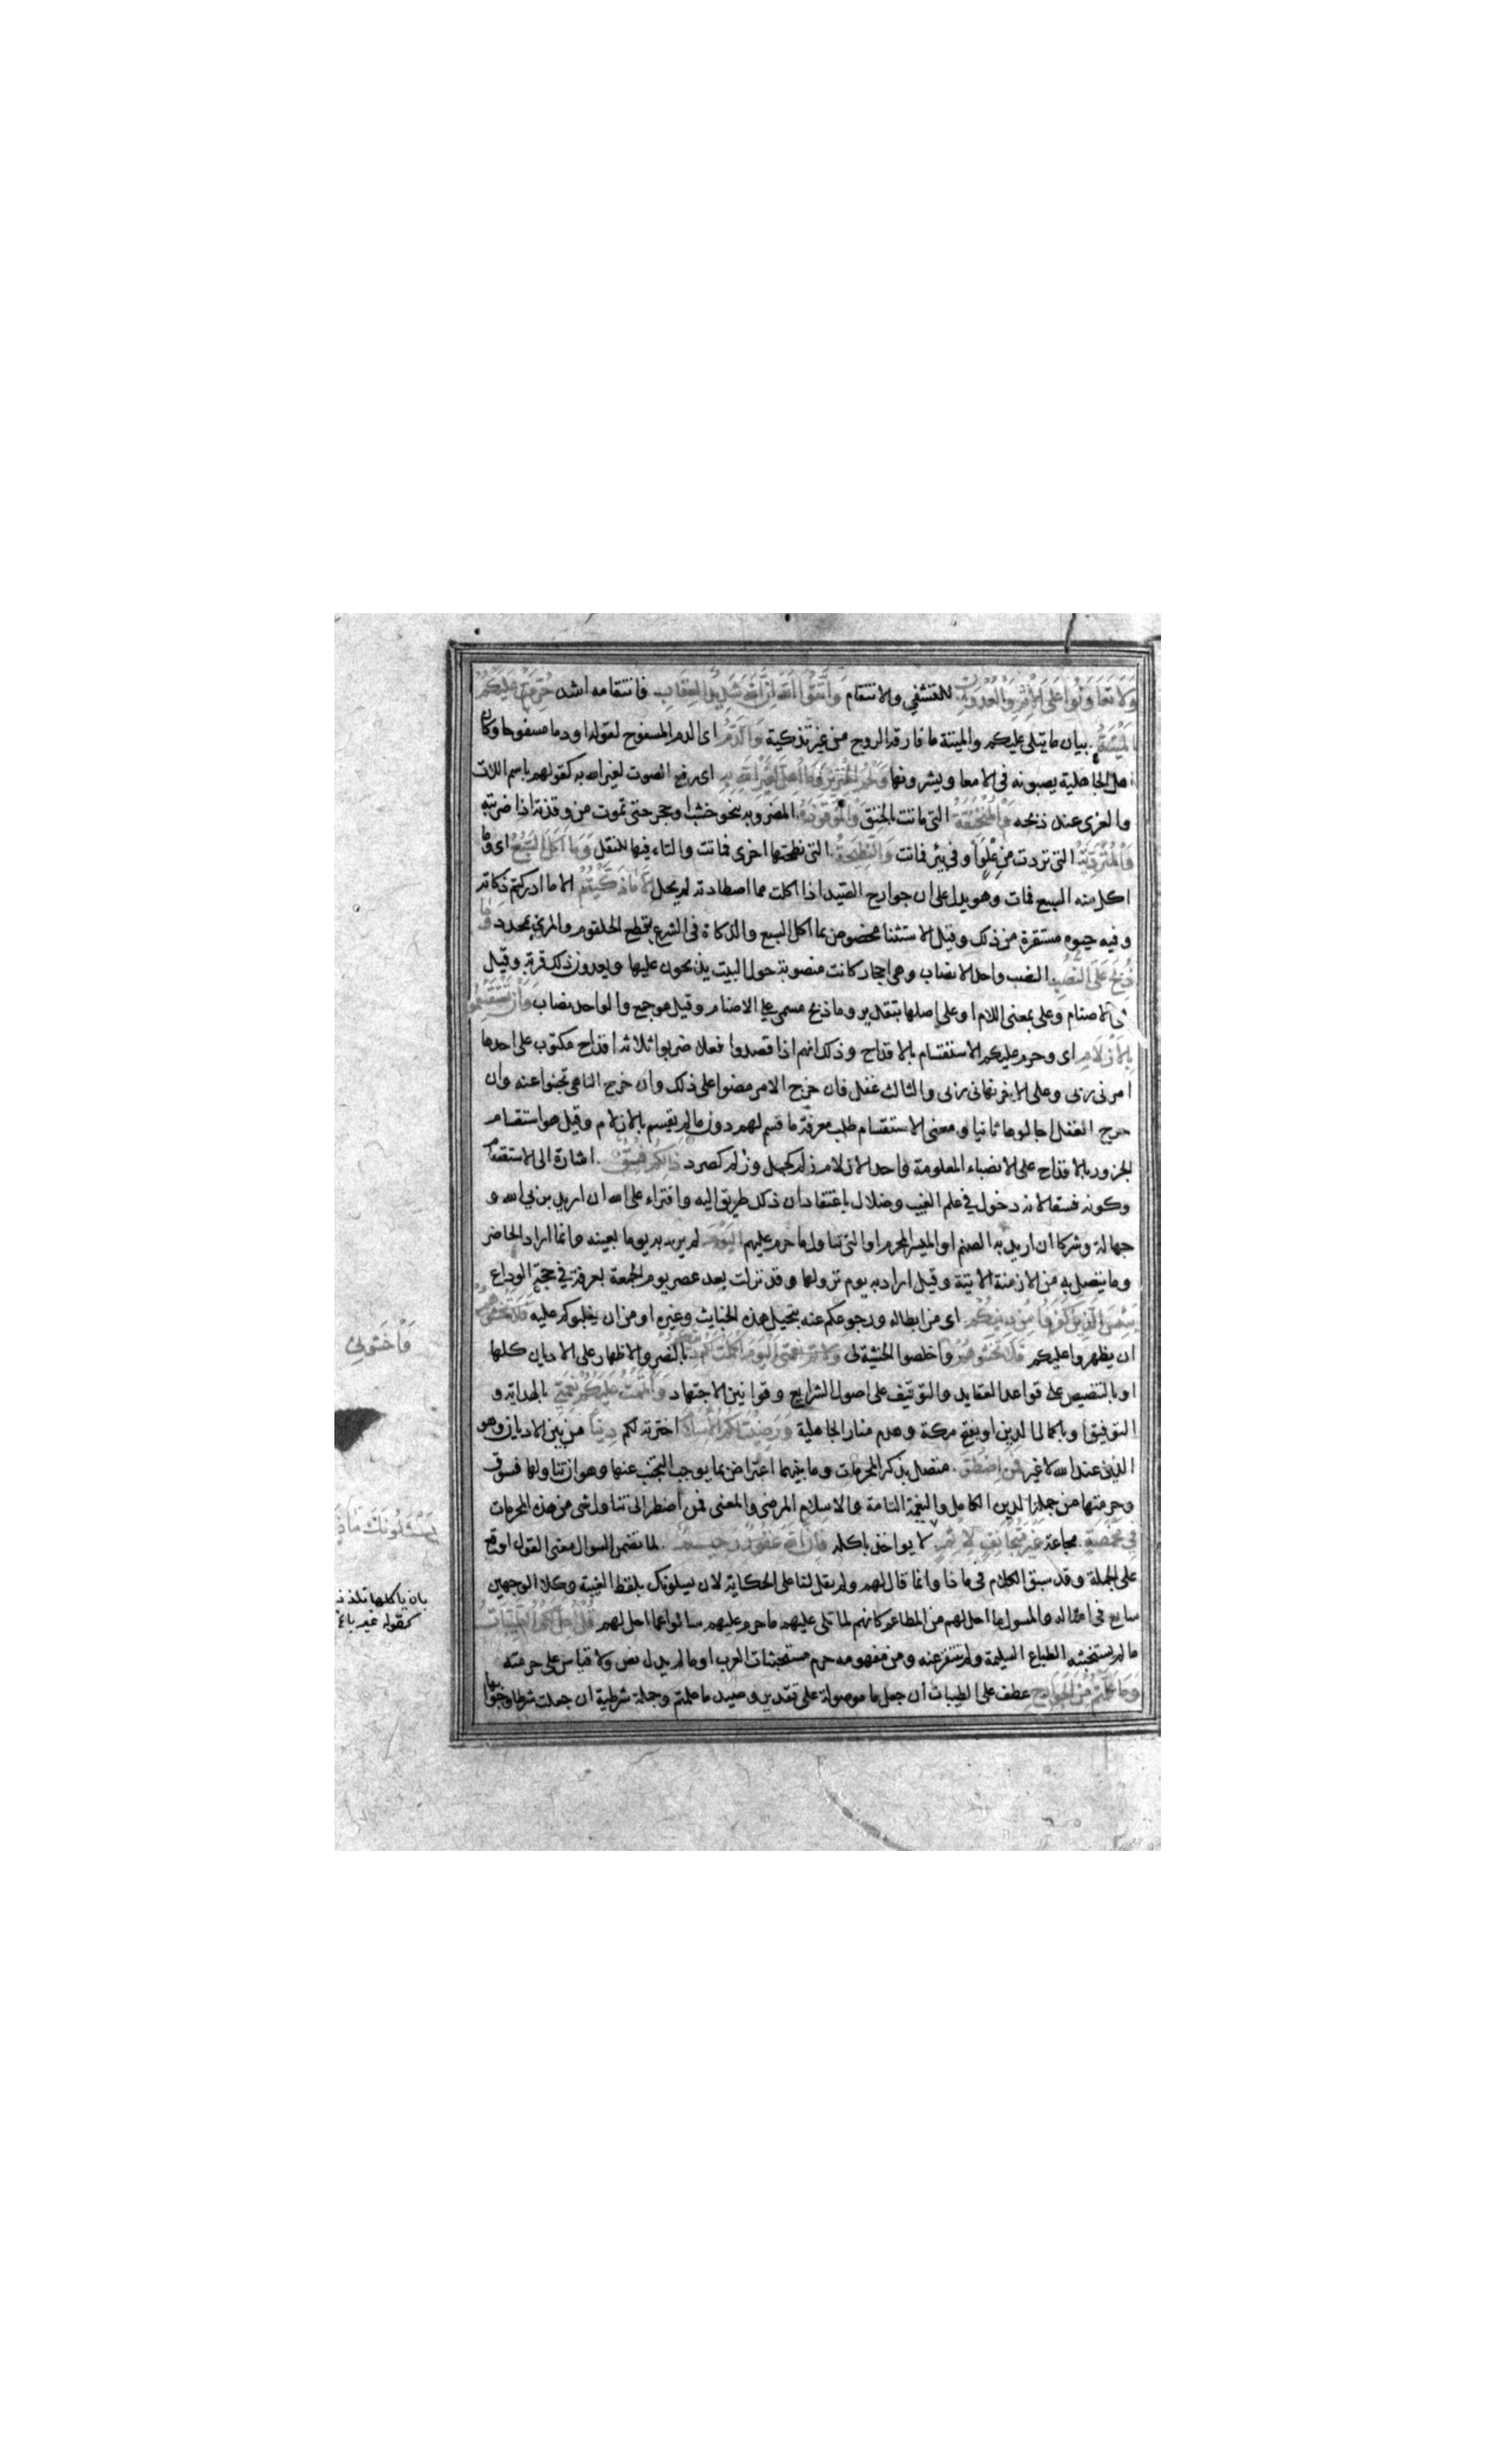 وَلَا تَعَاوَنُوا عَلَى الْإِثْمِ وَالْعُدْوَانِ للتشفي والانتقام وَاتَّقُوا اللَّهَ إِنَّ اللَّهَ شَدِيدُ الْعِقَابِ فانتقامه اشد حُرِّمَتْ عَلَيْكُمُ
الْمَيْتَةُ بيان ما يتلى عليكم والميتة ما فارقه الروح من غير تذكية وَالدَّمُ اى الدم المسفوح لقوله او دما مسفوحا وكان
اهل الجاهلية يصبونه فى الامعا ويشرونها وَلَحْمُ الْخِنْزِيرِ وَمَا أُهِلَّ لِغَيْرِ اللَّهِ بِهِ اى رفع الصوت لغير الله به كقولهم باسم اللات
والعزى عند ذبحه وَالْمُنْخَنِقَةُ التى ماتت بالخنق وَالْمَوْقُوذَةُ المضروبه بنحو خشب او حجر حتى تموت من وقذته اذا ضربته
وَالْمُتَرَدِّيَةُ التى تردت من علو او فى بئر فماتت وَالنَّطِيحَةُ التى نطحتها اخرى فماتت والتاء فيها للنقل وَمَا أَكَلَ السَّبُعُ اى وما
اكل منه السبع فمات وهو يدل على ان جوارح الصيد اذا اكلت مما اصطادته لم يحل إِلَّا مَا ذَكَّيْتُمْ الا ما ادركتم ذكاته
وفيه حيوه مستقرة من ذلك وقيل الاستثنا مخصوص بما اكل السبع والذكاة فى الشرع بقطع الحلقوم والمرئ بمحدد وَمَا
ذُبِحَ عَلَى النُّصُبِ النصب واحد الانصاب وهى احجار كانت منصوبة حول البيت يذبحون عليها ويعدون ذلك قربة وقيل
هى الاصنام وعلى بمعنى اللام او على اصلها بتقدير وما ذبح مسمى على الاصنام وقيل هو جمع والواحد نصاب وَأَنْ تَسْتَقْسِمُوا
بِالْأَزْلَامِ اى وحرم عليكم الاستقسام بالاقداح وذلك انهم اذا قصدوا فعلا ضربوا ثلاثة اقداح مكتوب على احدها
امرنى ربى وعلى الاخر نهانى ربى والثالث غفل فان خرج الامر مضوا على ذلك وان خرج الناهى تجنبوا عنه وان
خرج الغفل اجالوها ثانيا ومعنى الاستقسام طلب معرفة ما قسم لهم دون ما لم يقسم بالازلام وقيل هو استقسام
الجزور بالاقداح على الانصباء المعلومة واحد الازلام زلم كجمل وزلم كصرد ذَلِكُمْ فِسْقٌ اشارة الى الاستقسام
وكونه فسقا لانه دخول فى علم الغيب وضلال باعتقاد ان ذلك طريق اليه وافتراء على الله ان اريد بربى الله و
جهالة وشركا ان اريد به الصنم او الميسر المحرم او التى تناول ما حرم عليهم الْيَوْمَ لم يرد به يوما بعينه وانما اراد الحاضر
وما يتصل به من الازمنة الاتية وقيل اراد به يوم نزولها وقد نزلت بعد عصر يوم الجمعة بعرفة في حجة الوداع
يَئِسَ الَّذِينَ كَفَرُوا مِنْ دِينِكُمْ اى من ابطاله ورجوعكم عنه بتحليل هذه الخبايث وغيره او من ان يغلبوكم عليه فَلَا تَخْشَوْهُمْ
ان يظهروا عليكم واخلصوا الخشية لى الْيَوْمَ أَكْمَلْتُ لَكُمْ دِينَكُمْ بالنصر والاظهار على الاديان كلها
او بالتنصيص على قواعد العقايد والتوقيف على اصول الشرايع وقوانين الاجتهاد وَأَتْمَمْتُ عَلَيْكُمْ نِعْمَتِي بالهداية و
التوفيق او باكمال الدين او بفتح مكة وهدم منار الجاهلية وَرَضِيتُ لَكُمُ الْإِسْلَامَ اخترته لكم دِينًا من بين الاديان وهو
الدين عند الله لا غير فَمَنِ اضْطُرَّ متصل بذكر المحرمات وما بينهما اعتراض بما يوجب التجنب عنها وهو ان تناولها فسوق
وحرمتها من جملة الدين الكامل والنعمة التامة والاسلام المرضى والمعنى فمن اضطر الى تناول شى من هذه المحرمات
فِي مَخْمَصَةٍ مجاعة غَيْرَ مُتَجَانِفٍ لِإِثْمٍ لا يواخذ باكله فَإِنَّ اللَّهَ غَفُورٌ رَحِيمٌ لما تضمن السوال معنى القول اوقع
على الجملة وقد سبق الكلام فى ماذا وانما قال لهم ولم يقل لنا على الحكاية لان يسلونك بلفظ الغيبة وكلا الوجهين
سايع فى امثاله والمسول ما احل لهم من المطاعم كانهم لما تلى عليهم ما حرم عليهم سالوا عما احل لهم قُلْ أُحِلَّ لَكُمُ الطَّيِّبَاتُ
ما لم يستخبثه الطباع السليمة ولم تتنفر عنه ومن مفهومه حرم مستخبثات العرب او ما لم يدل نص ولا قياس على حرمته
وَمَا عَلَّمْتُمْ مِنَ الْجَوَارِحِ عطف على الطيبات ان جعل ما موصولة على تقدير وصيد ما علمتم وجملة شرطية ان جعلت شرطا وجوابها
وَاخْشَوْنِي
يَسْئَلُونَكَ مَاذَا
بان ياكلها تلذذ
كقوله غير باغ